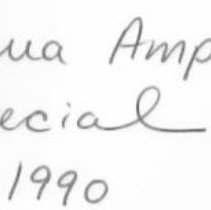 ua Amp
ecial
1990